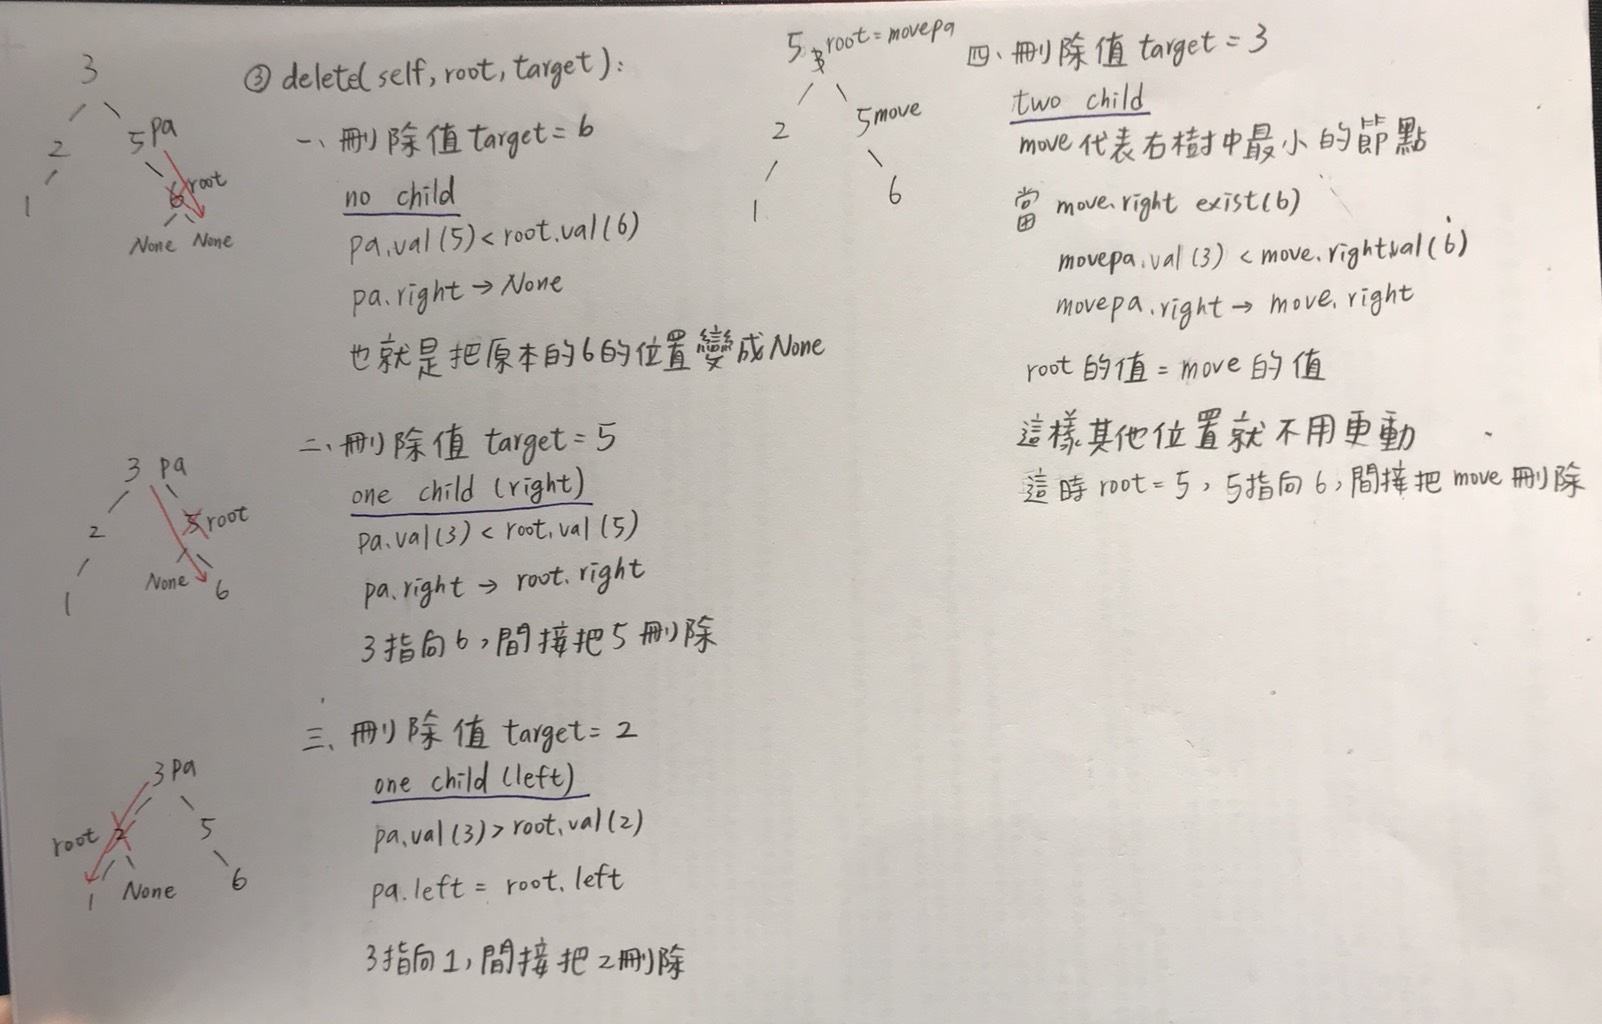 ③ delete(self, root, target):
3
2
5 pa
1
6 root
None None
一、刪除值 target = 6
no child
pa.val(5) < root.val(6)
pa.right → None
也就是把原本的6的位置變成None
3 pa
2
5 root
1
None
6
二、刪除值 target = 5
one child (right)
pa.val(3) < root.val(5)
pa.right → root.right
3指向6，間接把5刪除
3 pa
root 2
5
1
None
6
三、刪除值 target = 2
one child (left)
pa.val(3) > root.val(2)
pa.left = root.left
3指向1，間接把2刪除
5 3 root = movepa
2
5 move
1
6
四、刪除值 target = 3
two child
move代表右樹中最小的節點
當 move.right exist(6)
movepa.val(3) < move.right.val(6)
movepa.right → move.right
root的值 = move的值
這樣其他位置就不用更動
這時 root = 5，5指向6，間接把move刪除